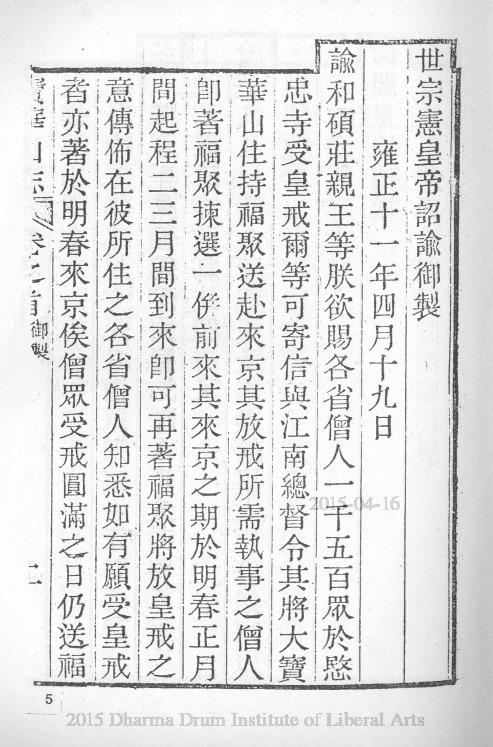 世宗憲皇帝詔諭御製
雍正十一年四月十九日
諭和碩莊親王等朕欲賜各省僧人一千五百眾於愍
忠寺受皇戒爾等可寄信與江南總督令其將大寶
華山住持福聚送赴來京其放戒所需執事之僧人
卽著福聚揀選一倂前來其來京之期於明春正月
間起程二三月間到來卽可再著福聚將放皇戒之
意傳佈在彼所住之各省僧人知悉如有願受皇戒
者亦著於明春來京俟僧眾受戒圓滿之日仍送福
寶華山志 卷之首 御製
5
2015-04-16
2015 Dharma Drum Institute of Liberal Arts